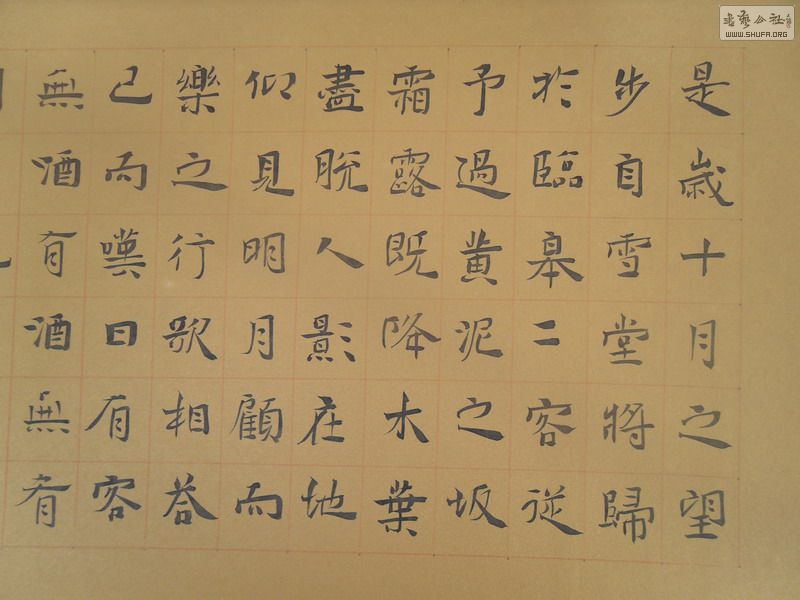 是歲十月之望
步自雪堂將歸
於臨皋二客從
予過黃泥之坂
霜露既降木葉
盡脫人影在地
仰見明月顧而
樂之行歌相荅
已而嘆曰有客
無酒有酒無肴
書藝公社
WWW.SHUFA.ORG